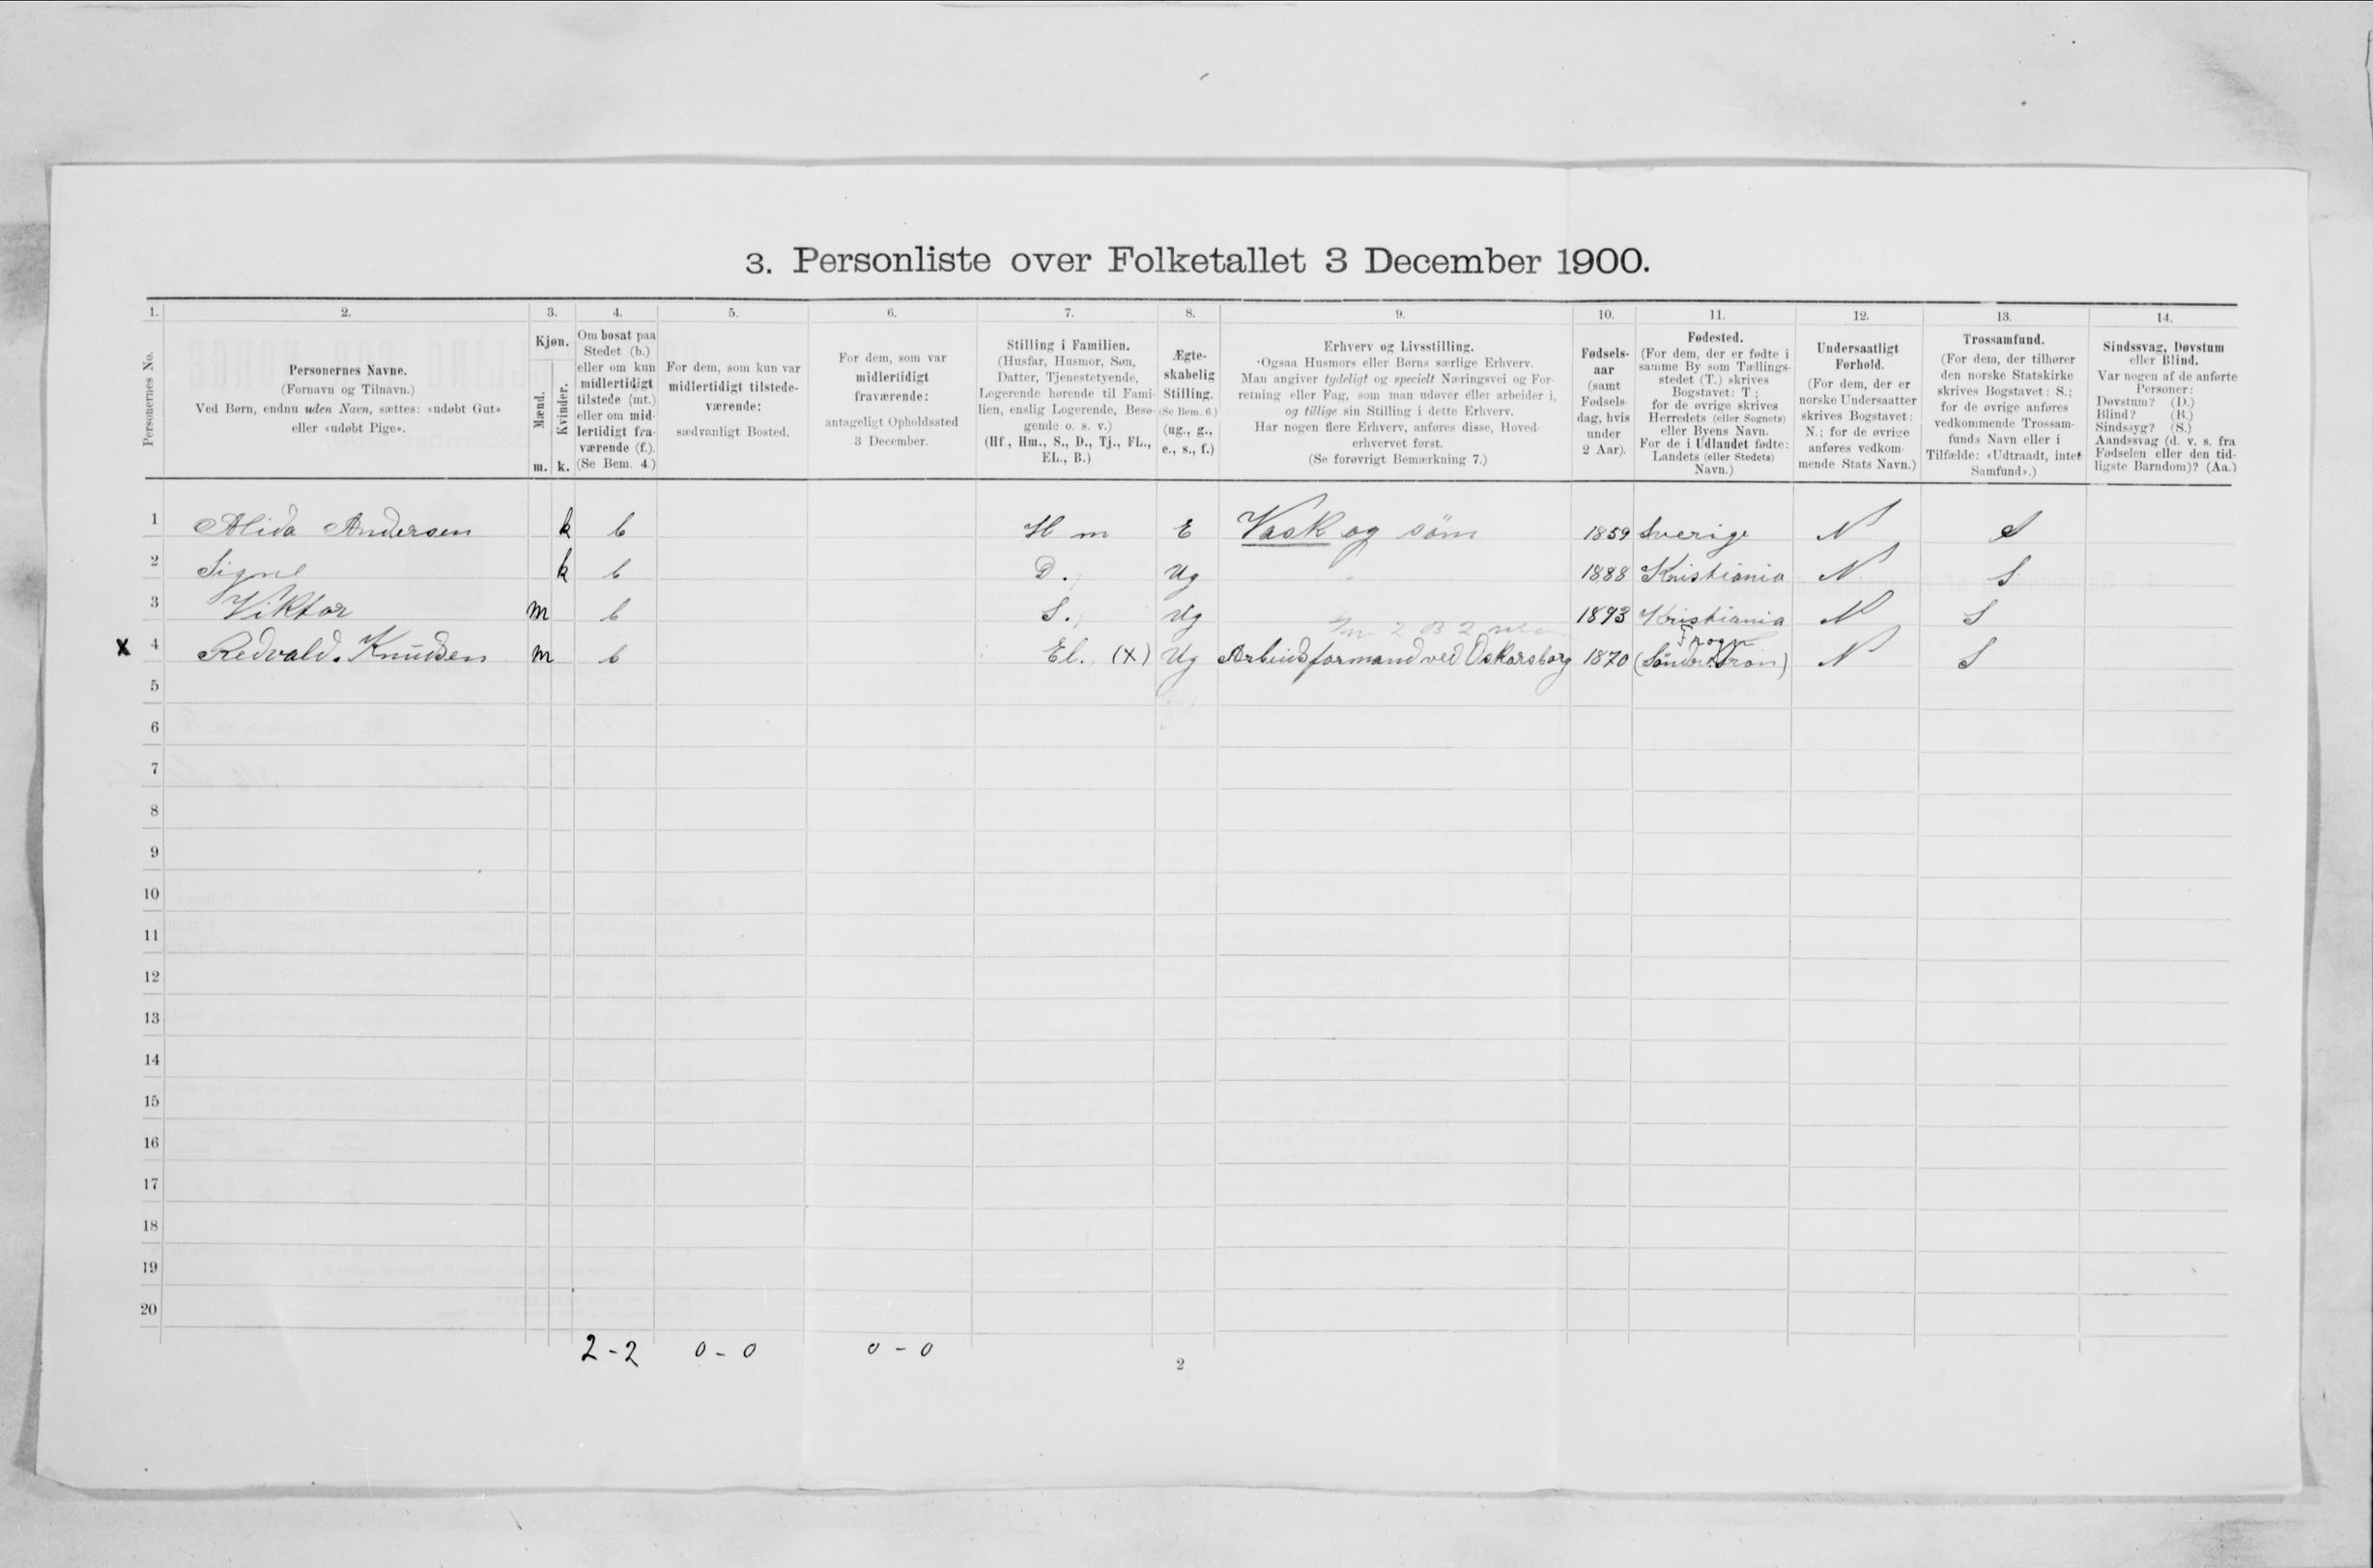 3. Personliste over Folketallet 3 December 1900.
1. 2. 3. 4. 5. 6. 7. 8. 9. 10. 11. 12. 13. 14.
Personernes No.
Personernes Navne.
(Fornavn og Tilnavn.)
Ved Børn, endnu uden Navn, sættes: «udøbt Gut»
eller «udøbt Pige».
Kjøn.
Mænd.
Kvinder.
m. k.
Om bosat paa
Stedet (b.)
eller om kun
midlertidigt
tilstede (mt.)
eller om mid-
lertidigt fra-
værende (f.).
(Se Bem. 4.)
For dem, som kun var
midlertidigt tilstede-
værende:
sædvanligt Bosted.
For dem, som var
midlertidigt
fraværende:
antageligt Opholdssted
3 December.
Stilling i Familien.
(Husfar, Husmor, Søn,
Datter, Tjenestetyende,
Logerende hørende til Fami-
lien, enslig Logerende, Besø-
gende o. s. v.)
(Hf., Hm., S., D., Tj., FL.,
EL., B.)
Ægte-
skabelig
Stilling.
(Se Bem. 6.)
(ug., g.,
e., s., f.)
Erhverv og Livsstilling.
Ogsaa Husmors eller Børns særlige Erhverv.
Man angiver tydeligt og specielt Næringsvei og For-
retning eller Fag, som man udøver eller arbeider i,
og tillige sin Stilling i dette Erhverv.
Har nogen flere Erhverv, anføres disse, Hoved-
erhvervet først.
(Se forøvrigt Bemærkning 7.)
Fødsels-
aar
(samt
Fødsels-
dag, hvis
under
2 Aar).
Fødested.
(For dem, der er fødte i
samme By som Tællings-
stedet (T.) skrives
Bogstavet: T.;
for de øvrige skrives
Herredets (eller Sognets)
eller Byens Navn.
For de i Udlandet fødte:
Landets (eller Stedets)
Navn.)
Undersaatligt
Forhold.
(For dem, der er
norske Undersaatter
skrives Bogstavet:
N.; for de øvrige
anføres vedkom-
mende Stats Navn.)
Trossamfund.
(For dem, der tilhører
den norske Statskirke
skrives Bogstavet: S.;
for de øvrige anføres
vedkommende Trossam-
funds Navn eller i
Tilfælde: «Udtraadt, intet
Samfund».)
Sindssvag, Døvstum
eller Blind.
Var nogen af de anførte
Personer:
Døvstum? (D.)
Blind? (B.)
Sindssyg? (S.)
Aandssvag (d. v. s. fra
Fødselen eller den tid-
ligste Barndom)? (Aa.)
1 Alida Andersen k b Hm E Vask og söm 1859 Sverige N S
2 Signe k b D. Ug 1888 Kristiania N S
3 Viktor m b S. Ug 1893 Kristiania N S
Frogn
x 4 Redvald. Knudsen m b El. (X) Ug Arbeidsformand ved Oskarsborg 1870 N S
5
6
7
8
9
10
11
12
13
14
15
16
17
18
19
20
2-2 0-0 0-0
2